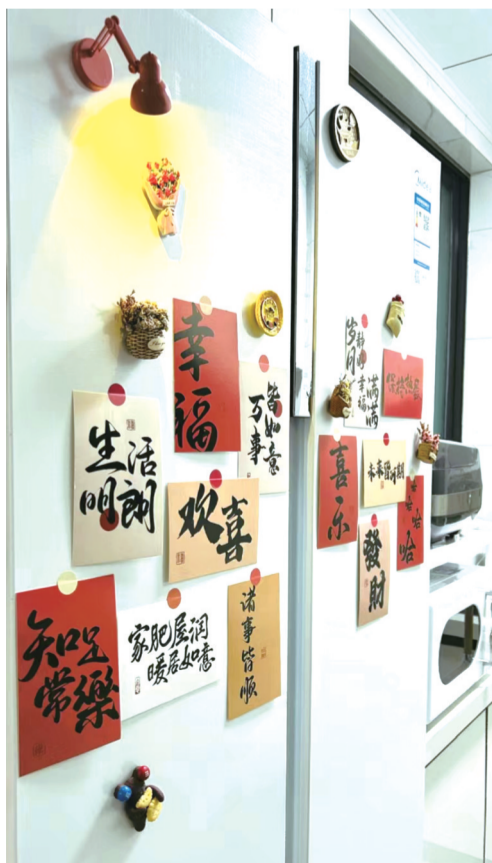 幸福
万事
皆如意
生活
明朗
欢喜
知足
常樂
家肥屋润
暖居如意
诸事皆顺
岁月静好
幸福满满
喜乐
未来发财
發財
哈哈哈